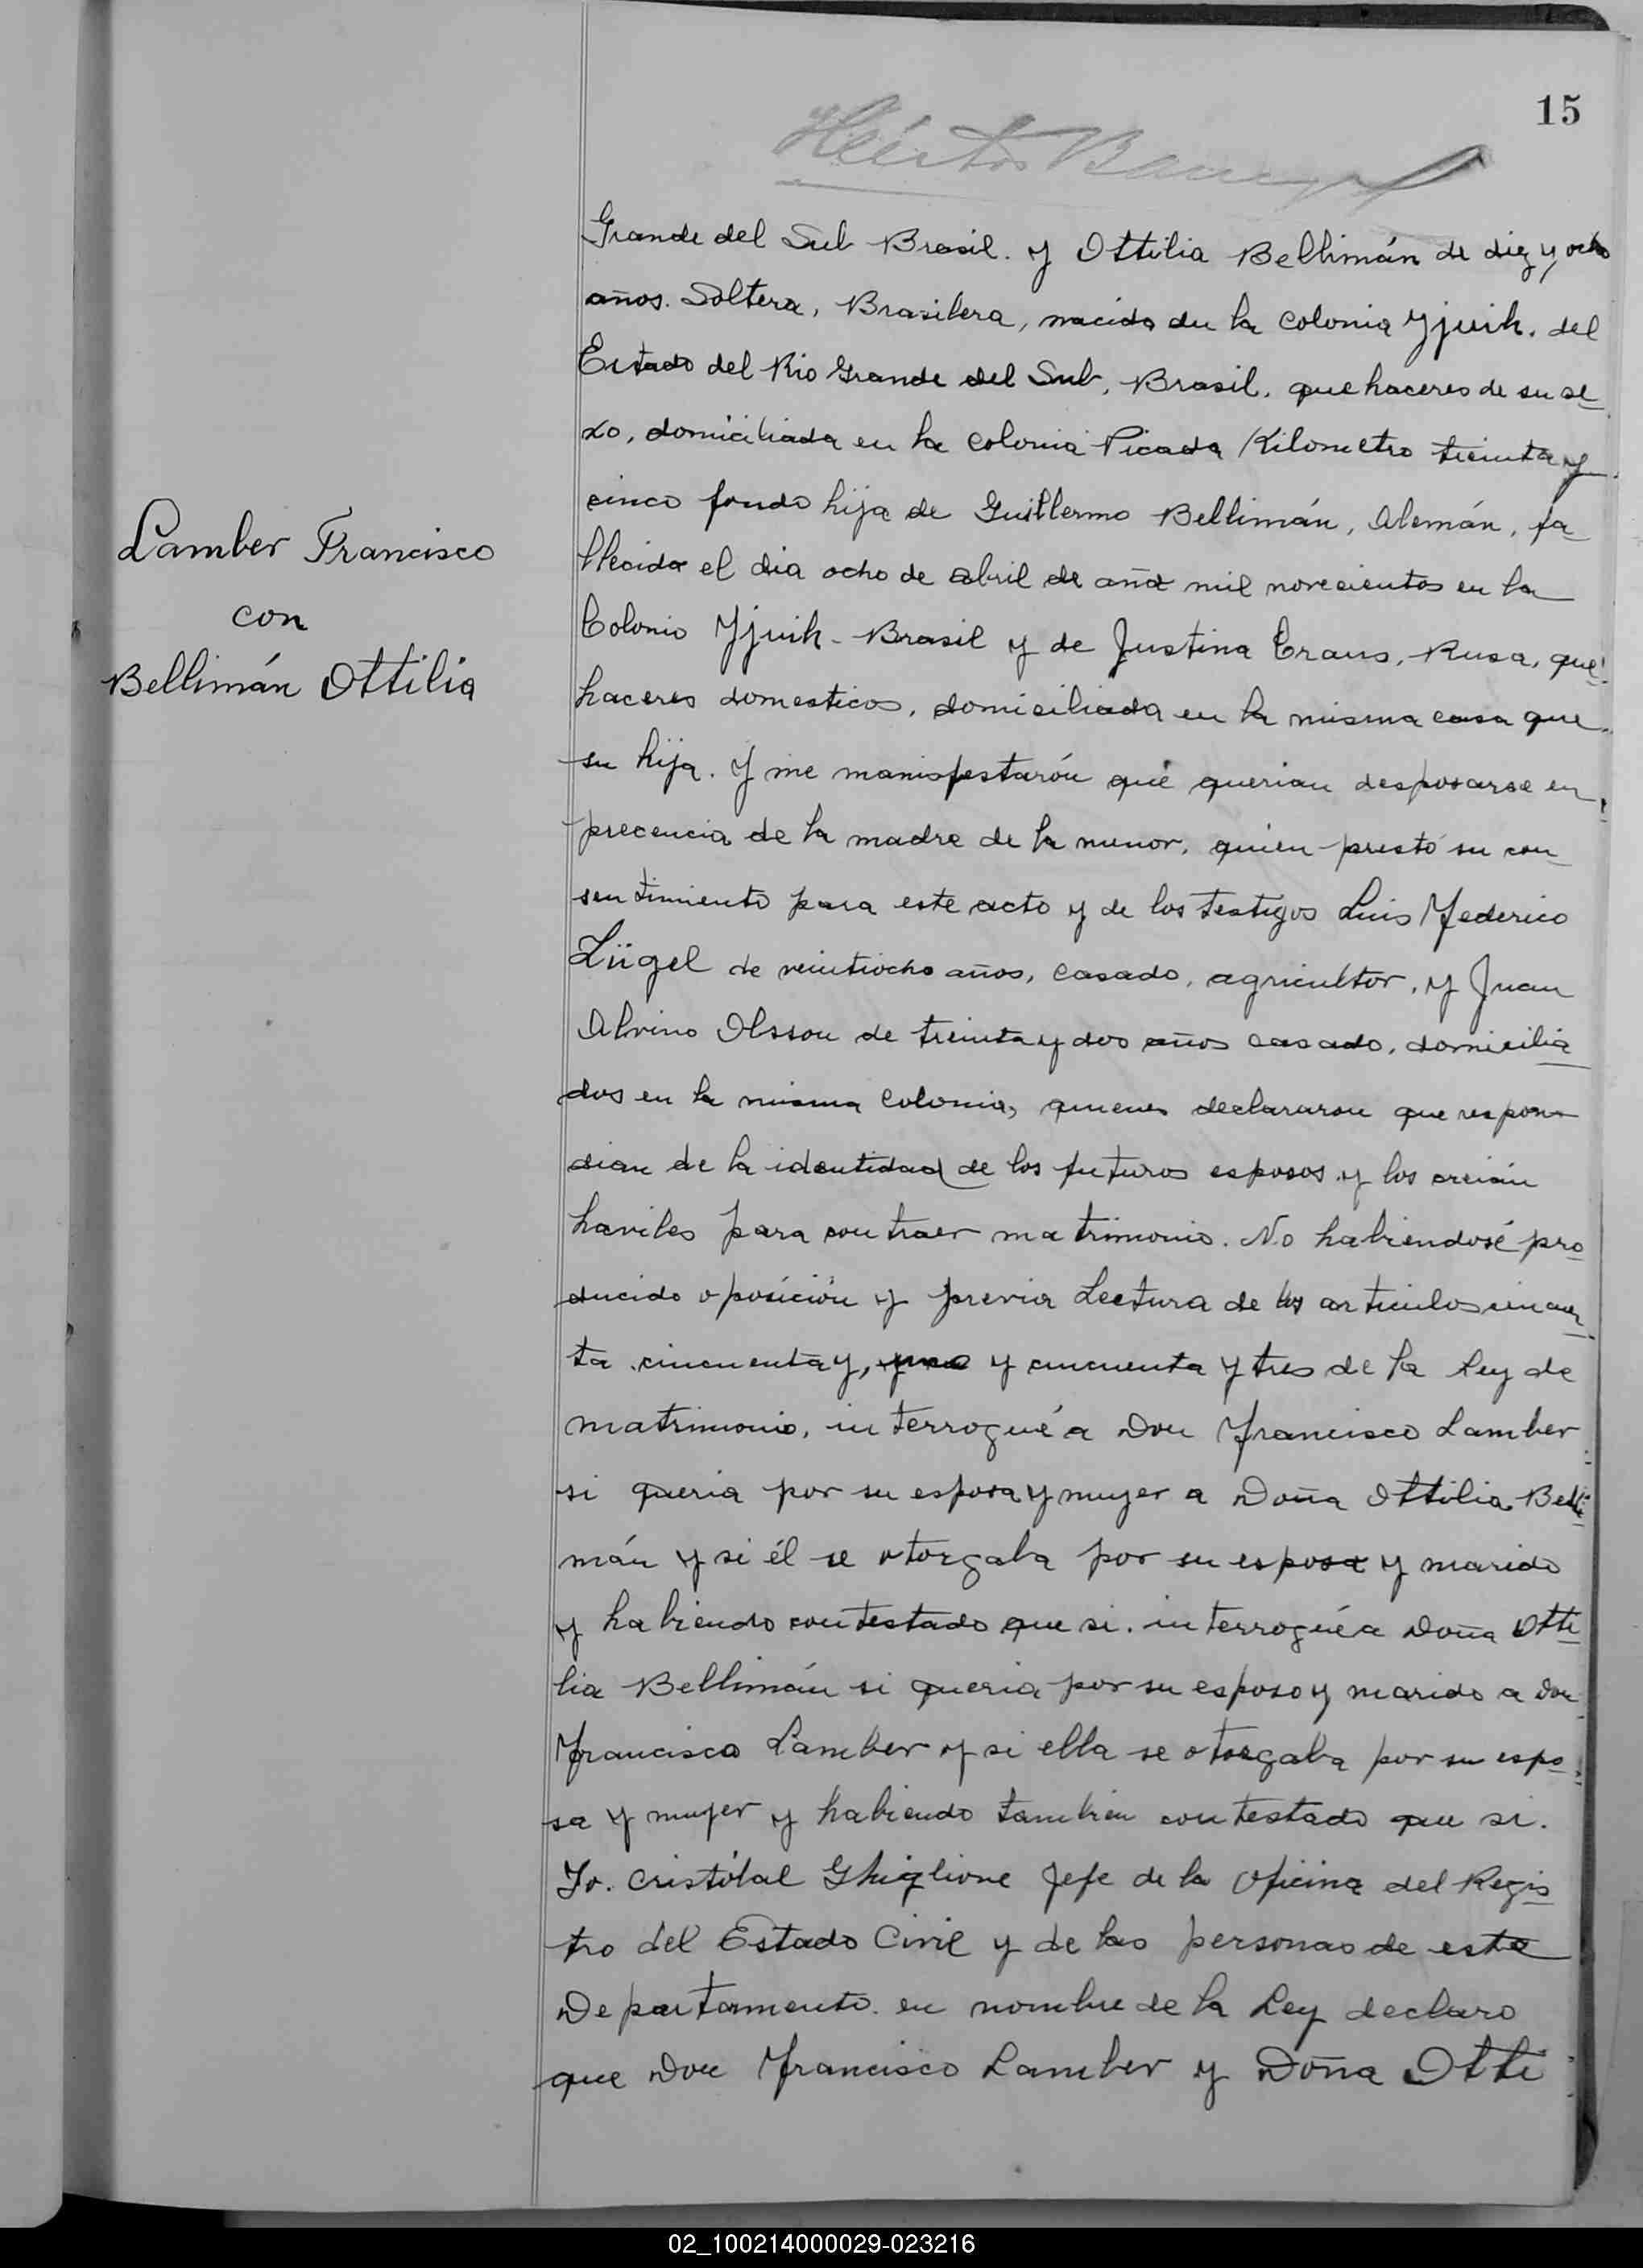 15
Héctor
Grande del Sub Brasil. y Ottilia Bellimán de diez y ocho
años. Soltera, Brasilera, nacida du la colonia Yjuih. del
Estado del Rio Grande del Sub, Brasil, que haceres de su se
xo, domiciliada en la colonia Picada Kilometro treinta y
cinco fondo hija de Guillermo Bellimán, Alemán, fa
llecido el dia ocho de abril de año mil novecientos en la
Colonia Yjuih - Brasil y de Justina Eraus, Rusa, que
haceres domesticos, domiciliada en la misma casa que
su hija. Y me manisfestarón que querian desposarse en
precencia de la madre de la menor, quien prestó su con
sentimiento para este acto y de los testigos Luis Federico
Lügel de veintiocho años, casado, agricultor, y Juan
Alvino Olsson de treinta y dos años casado, domicilia
dos en la misma colonia, quienes declararon que respon
dian de la identidad de los futuros esposos y los creián
haviles para contraer matrimonio. No habiendosé pro
ducido oposición y previa Lectura de los articulos cincuen
ta cincuenta y, uno y cincuenta y tres de la Ley de
matrimonio, interrogué a Don Francisco Lamber
si queria por su esposa y mujer a Doña Ottilia Belli
mán y si él se otorgaba por su esposo y marido
y habiendo contestado que si. interrogué a Doña Otti
lia Bellimán si queria por su esposo y marido a Don
Francisco Lamber y si ella se otorgaba por su espo
sa y mujer y habiendo tambien contestado que si.
Yo. Cristóbal Ghiglione Jefe de la Oficina del Regis
tro del Estado Civil y de las personas de este
Departamento. en nombre de la Ley declaro
que Don Francisco Lamber y Doña Otti
Lamber Francisco
con
Bellimán Ottilia
02_100214000029-023216